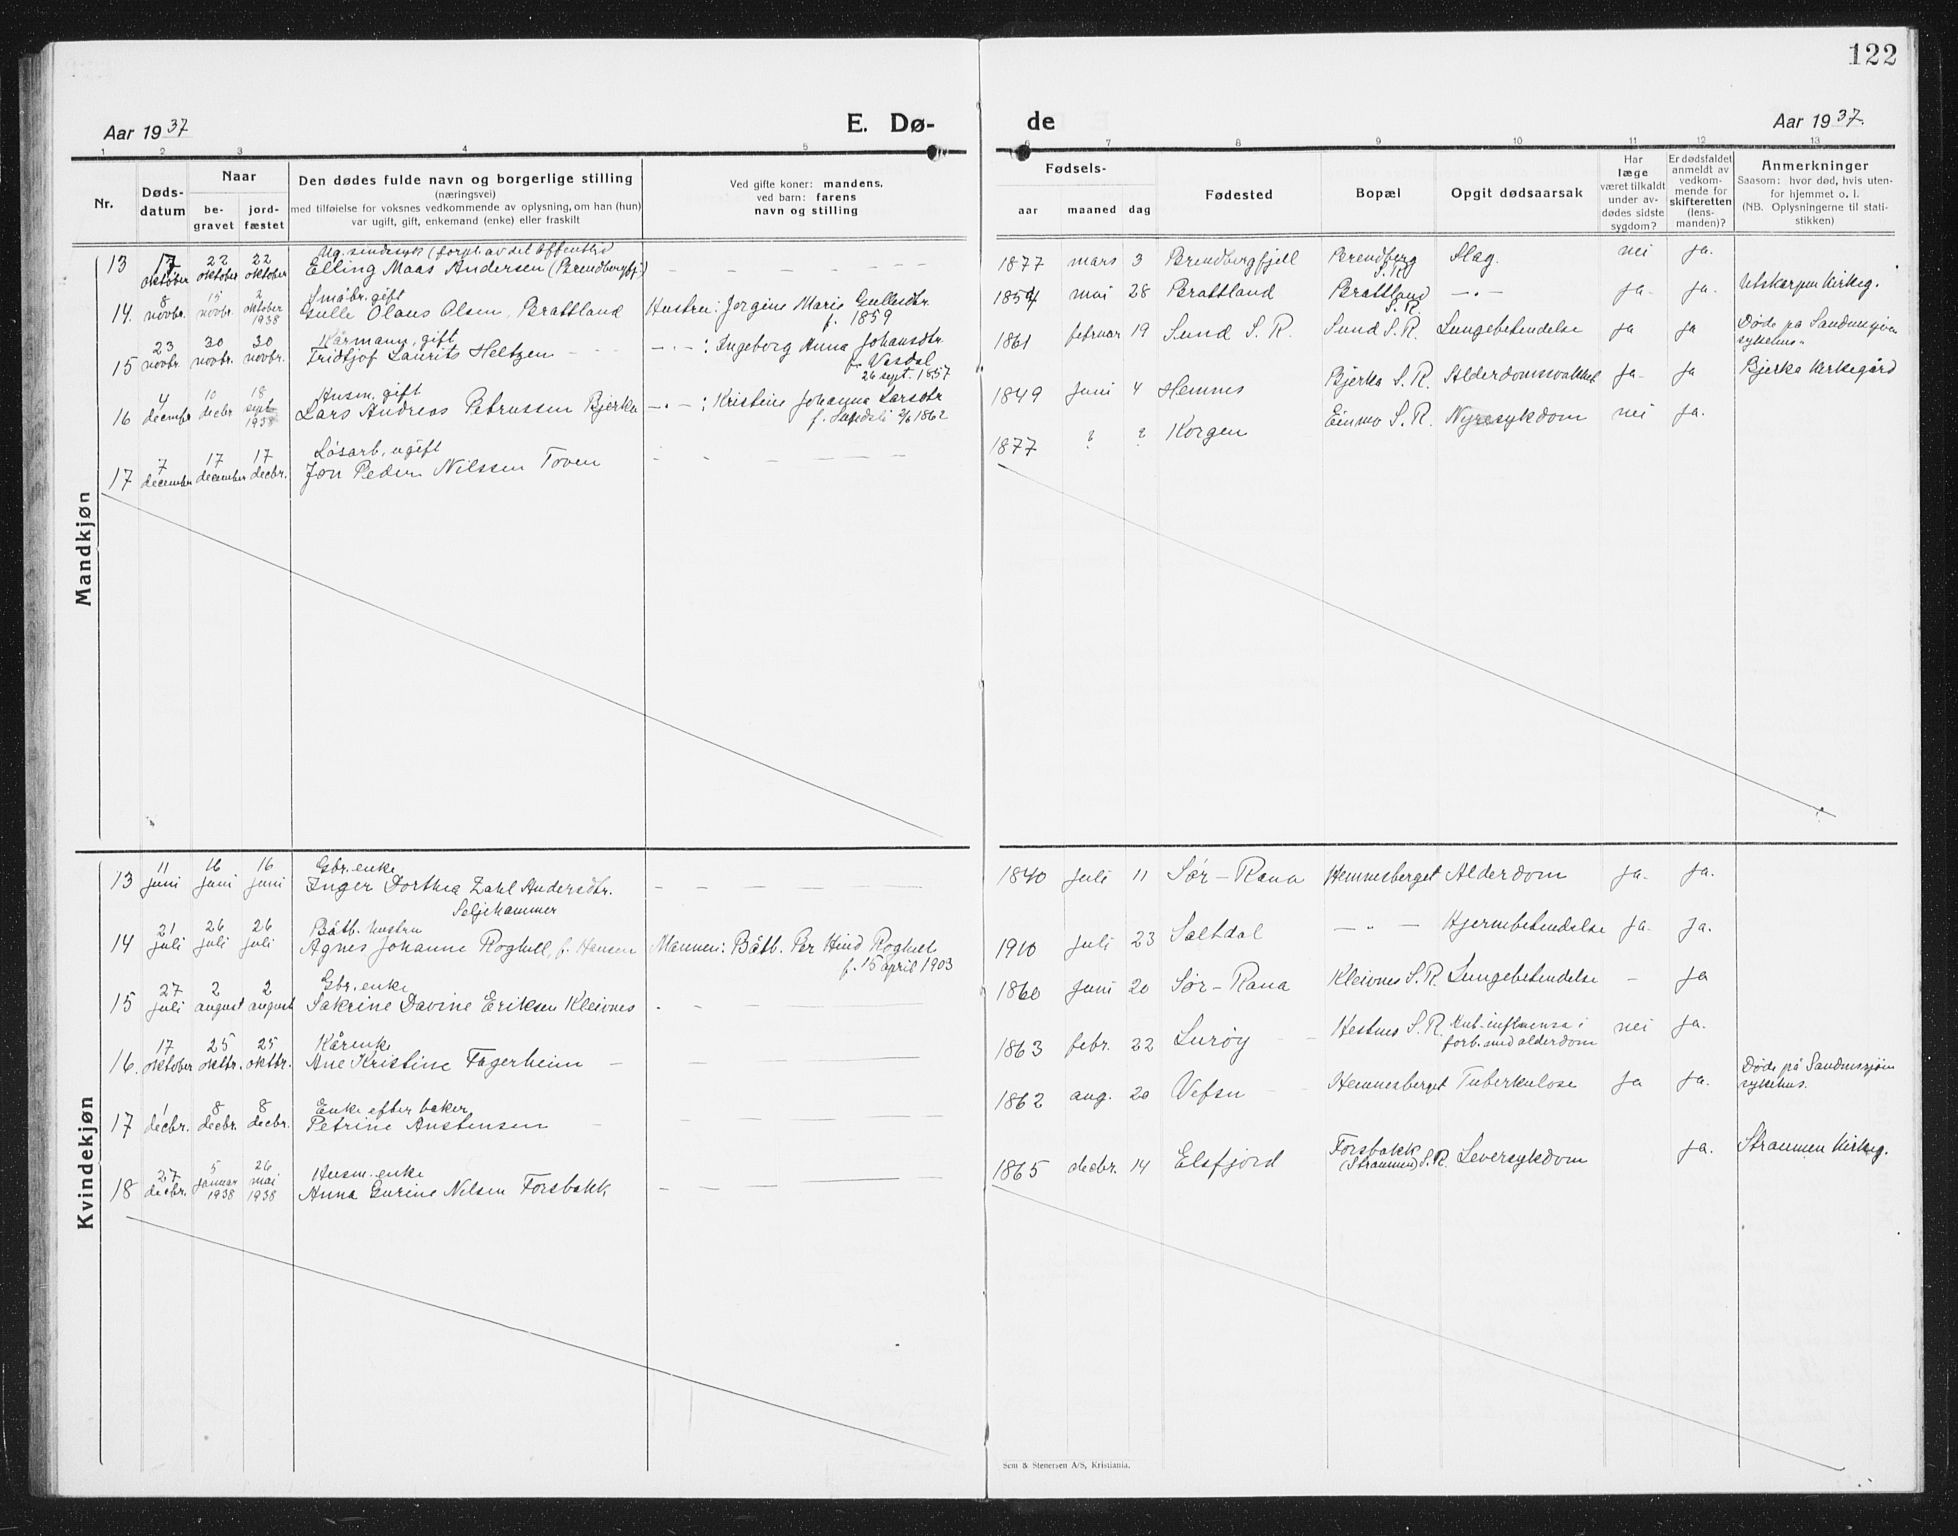 122
Aar 1937
E. Dø-
de
Aar 1937.
1 2 3 4 5 6 7 8 9 10 11 12 13
Nr.
Døds-
datum
Naar
be-
gravet
jord-
fæstet
Den dødes fulde navn og borgerlige stilling
(næringsvei)
med tilføielse for voksnes vedkommende av oplysning, om han (hun)
var ugift, gift, enkemand (enke) eller fraskilt
Ved gifte koner: mandens,
ved barn: farens
navn og stilling
Fødsels-
aar maaned dag
Fødested
Bopæl
Opgit dødsaarsak
Har
læge
været tilkaldt
under av-
dødes sidste
sygdom?
Er dødsfaldet
anmeldt av
vedkom-
mende for
skifteretten
(lens-
manden)?
Anmerkninger
Saasom: hvor død, hvis uten-
for hjemmet o. l.
(NB. Oplysningerne til stati-
stikken)
Mandkjøn
Ug. sindssyk (forpl. av det offentlig)
13 17 oktober 22 oktober 22 oktober Elling Maas Andersen (Brendbergfj.) – – – – – – – 1877 mars 3 Brendbergfjell Brendberg S.R. Slag. nei ja.
Småbr. gift
14. 8 novbr. 15 novbr. 2 oktober 1938 Gulle Olaus Olsen, Brattland Hustru: Jorgine Marie Gullesdtr. f. 1859 1854 mai 28 Brattland Brattland S.R. – " – ja. ja. Utskarpen Kirkeg.
Kårmann, gift
15 23 novbr. 30 novbr. 30 novbr. Fridtjof Laurits Heltzen – – – " – : Ingeborg Anna Johansdtr. f. Vasdal 26 sept. 1857 1861 februar 19 Sund S. R. Sund S. R. Lungebetendelse ja ja Døde på Sandnessjøen sykehus.
Husm. gift
16 4 decembr 10 decbr 18 septr 1938 Lars Andreas Petrussen Bjerka – " – : Kristine Johanna Larsdtr f. 2/6 1862 1849 Juni 4 Hemnes Bjerka S. R. Alderdomssvakhet ja ja Bjerka Kirkegård
Løsarb, ugift
17 7 december 17 december 17 decbr. Jon Peder Nilssen Toven – – – – – – 1877 ? ? Korgen Einmo S. R. Nyresykdom nei ja.
Kvindekjøn
Gbr. enke
13 11 juni 16 juni 16 juni Inger Dorthea Zahl Andersdtr. Seljehammer – – – – – 1840 juli 11 Sør-Rana Hemnesberget Alderdom ja. ja.
Båtb. hustru
14 21 juli 26 juli 26 juli Agnes Johanne Roghell, f. Hansen Mannen: Båtb. Per Hind Roghell f. 15 april 1903 1910 juli 23 Saltdal – " – Hjernebetendelse ja. ja.
Gbr. enke
15 27 juli 2 august 2 august Sakrine Davine Eriksen Kleivnes - – – 1860 Juni 20 Sør-Rana Kleivnes S. R. Lungebetendelse – ja
Kårenke
16. 17 oktober 25 oktbr. 25 oktbr. Ane Kristine Fagerheim – – – 1863 febr. 22 Lurøy – – Hestnes S. R. Kat. influensa i forb. med alderdom nei ja.
Enke efter baker
17 1 decbr. 8 decbr. 8 decbr. Petrine Austensen – – – – 1862 aug. 20 Vefsn – – Hemnesberget Tuberkulose ja ja. Døde på Sandnessjøen sykehus.
Husm. enke
18 27 decbr. 5 januar 1938 26 mai 1938 Anna Gurine Nilsen Forsbakk – – – – 1865 decbr. 14 Elsfjord Forsbakk (Straumen) S. R. Leversykdom ja. Straumen Kirkeg.
Sem & Stenersen A/S, Kristiania.